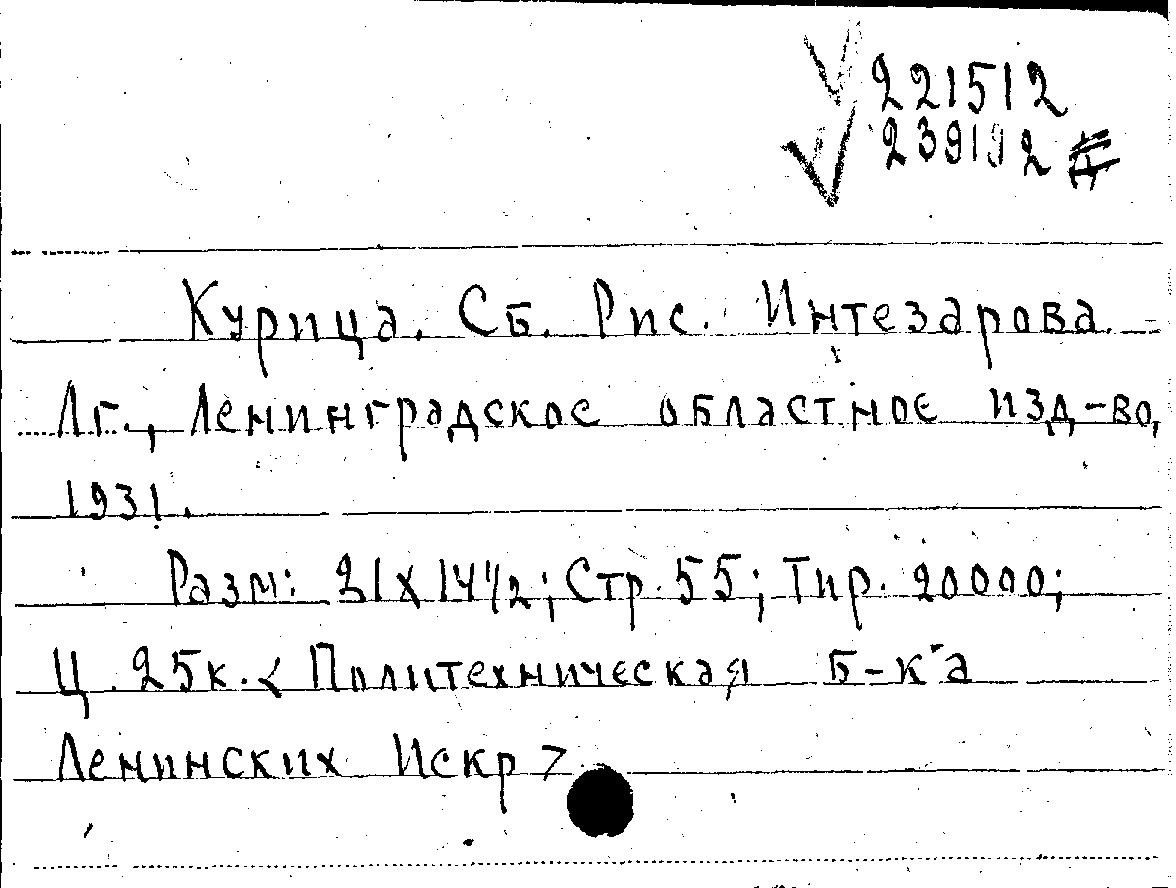 221512
239192
Курица. Сб. Рис. Интезарова.
Лг., Ленинградское областное изд-во,
1931.
Разм: 21х14 1/2; Стр. 55; Тир. 20000;
Ц. 25к. < Политехническая б-ка
Ленинских Искр >